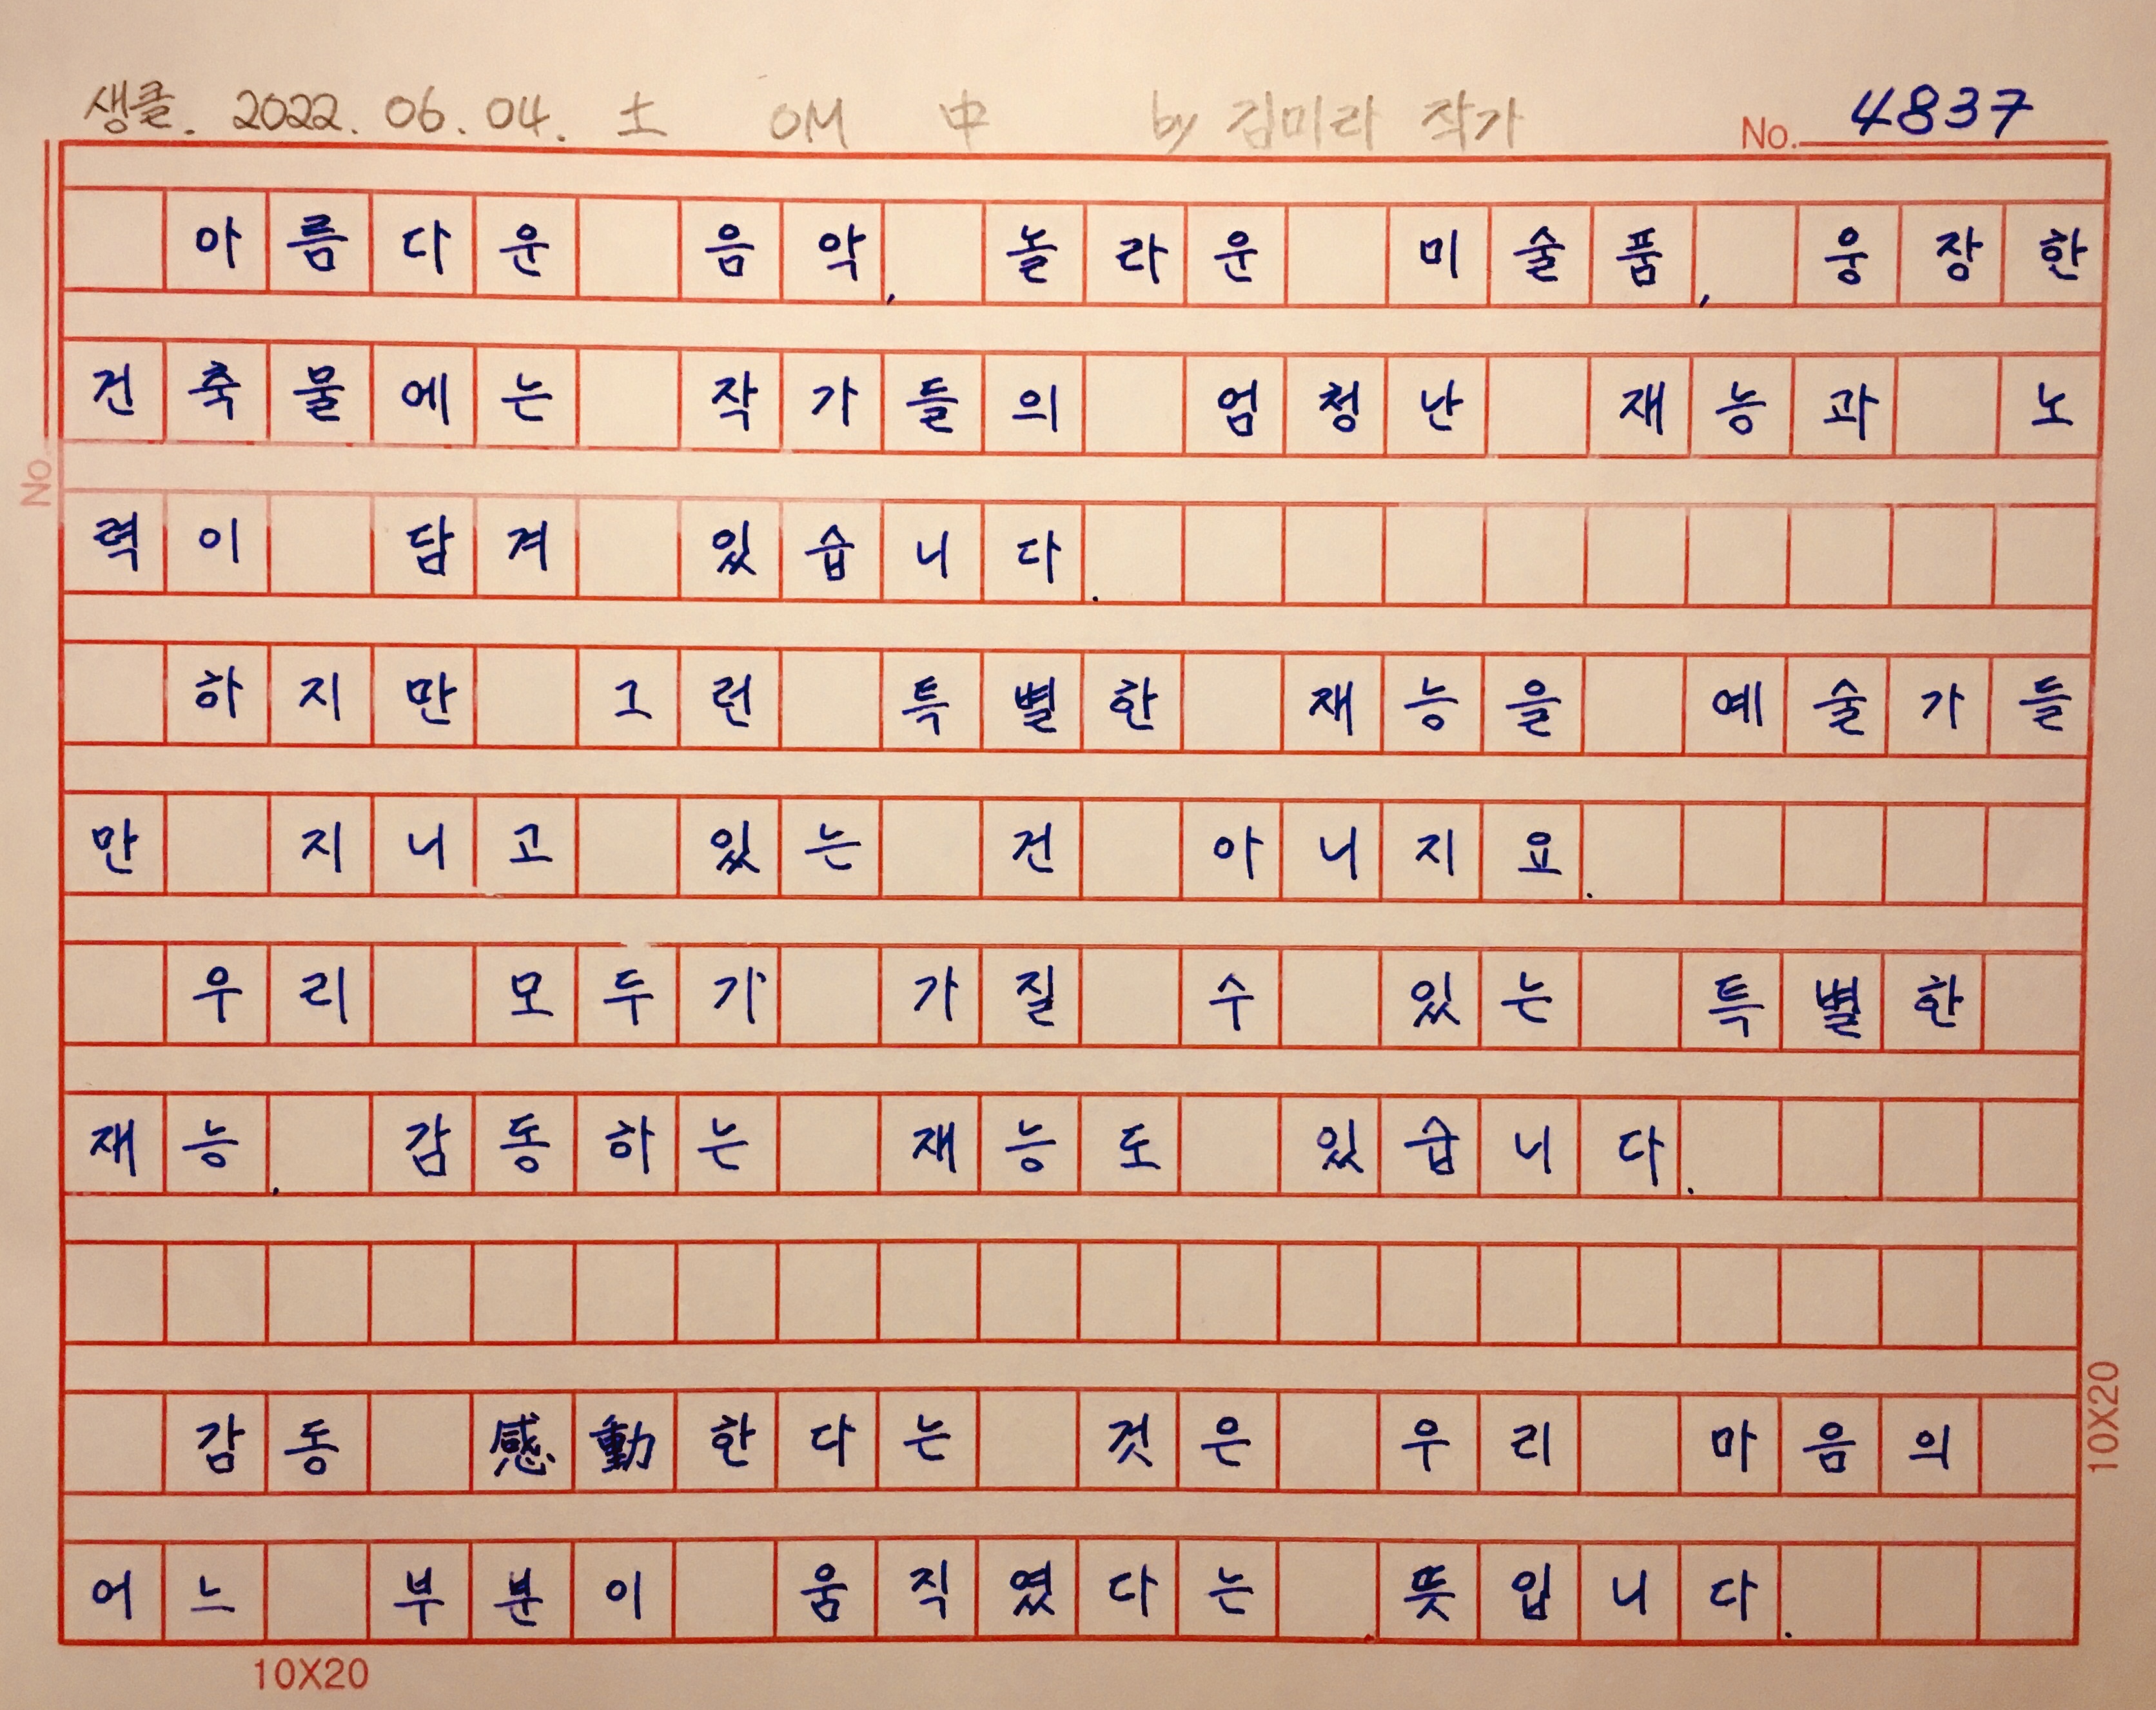 생클. 2022. 06. 04. 土 OM 中 by 김미라 작가
No. 4837
아름다운 음악, 놀라운 미술품, 웅장한
건축물에는 작가들의 엄청난 재능과 노
No.
력이 담겨 있습니다.
하지만 그런 특별한 재능을 예술가들
만 지니고 있는 건 아니지요.
우리 모두가 가질 수 있는 특별한
재능. 감동하는 재능도 있습니다.
감동 感動한다는 것은 우리 마음의
10X20
어느 부분이 움직였다는 뜻입니다.
10X20